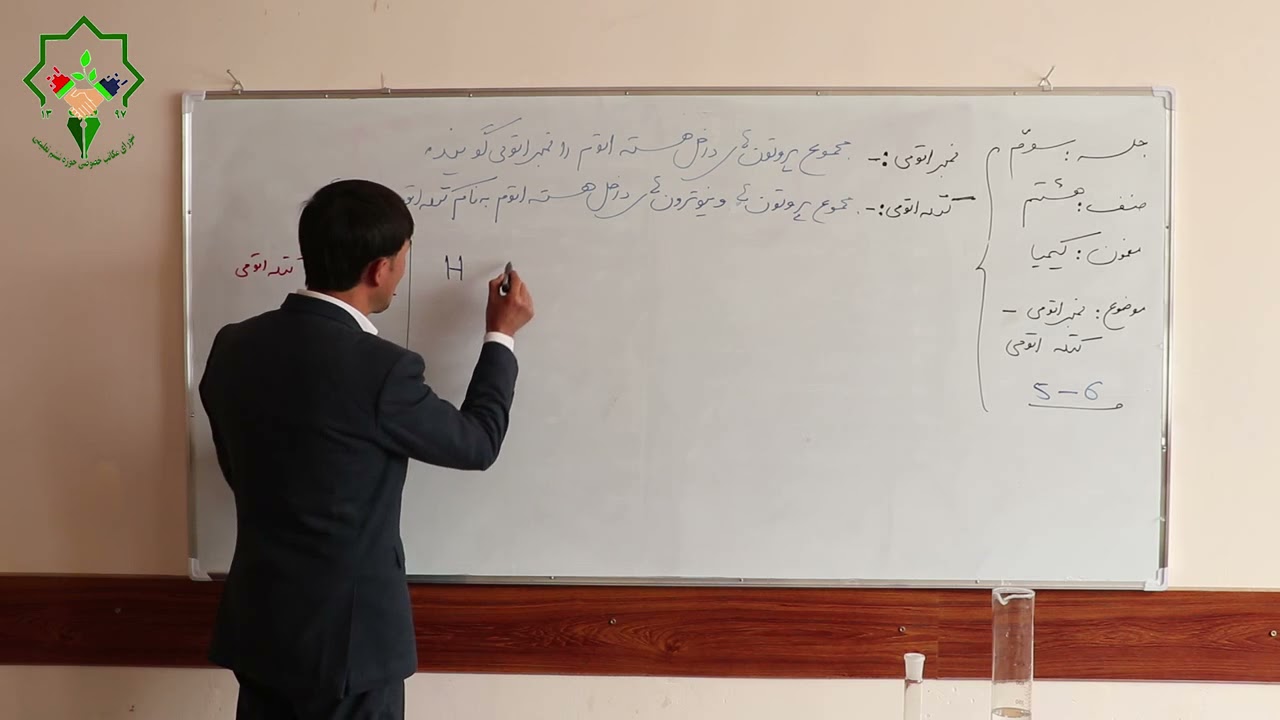 جلسه : سوّم
صنف : هشتم
مضمون : کیمیا
موضوع : نمبر اتومی -
کتله اتومی
5 - 6
نمبر اتومی :- مجموع پروتون های داخل هسته اتوم را نمبر اتومی گویند.
کتله اتومی :- مجموع پروتون ها و نیوترون های داخل هسته اتوم به نام کتله
H
کتله اتومی
۱۳ ۹۷
شورای مکاتب خصوصی حوزه ششم تعلیمی